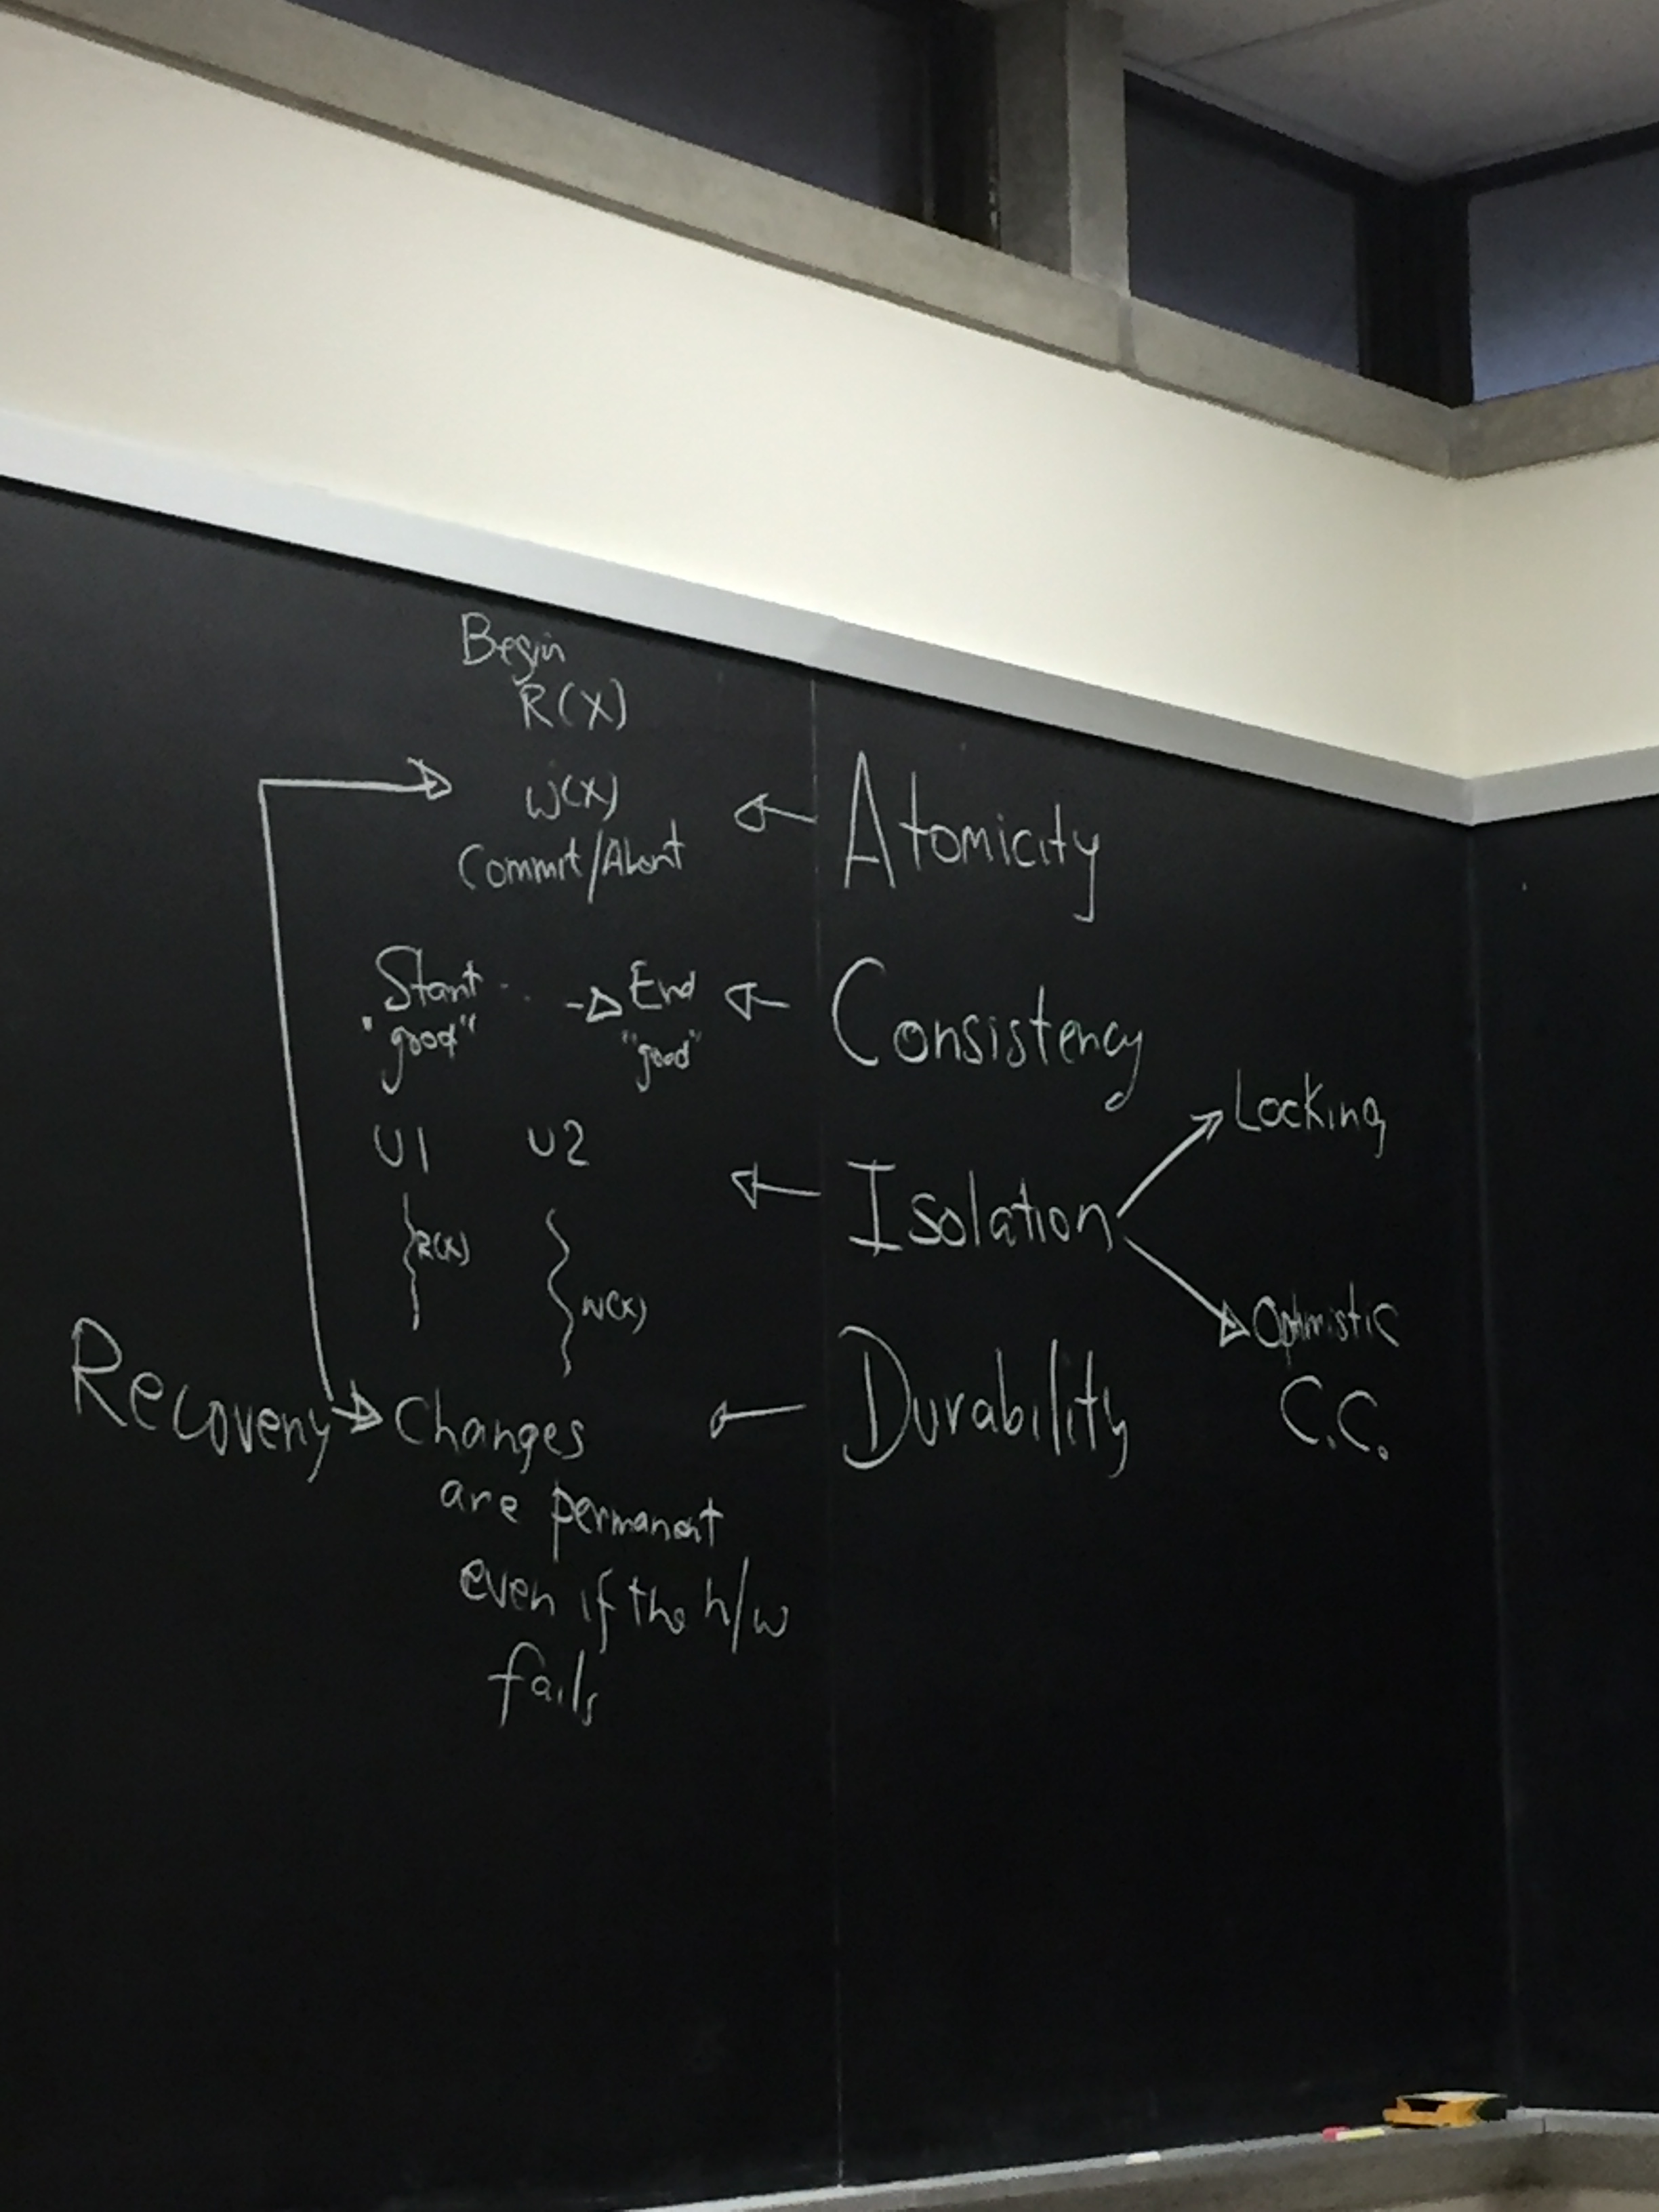 Begin
R(X)
W(X)
Commit/Abort
Atomicity
Start -> End
"good" "good"
Consistency
U1 U2
R(X)
W(X)
Isolation
Locking
Optimistic
C.C.
Recovery
Changes
are permanent
even if the h/w
fails
Durability